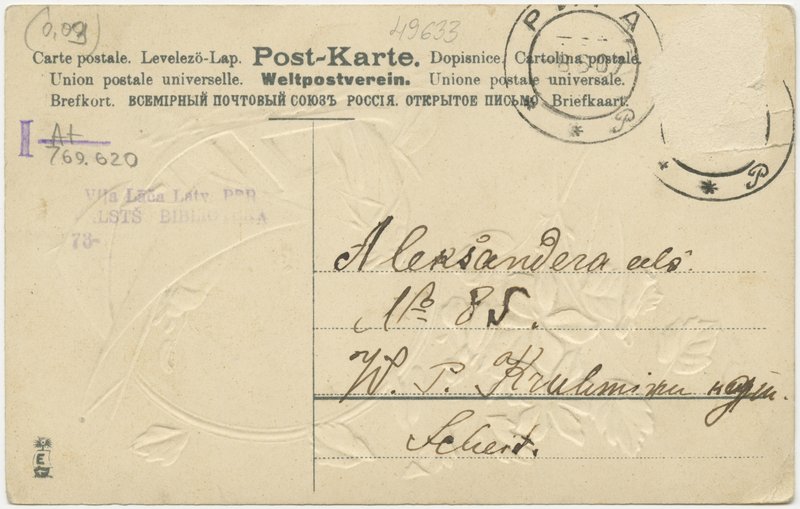 (0,09)
49633
РИГА
Carte postale. Levelező-Lap. Post-Karte. Dopisnice. Cartolina postale.
Union postale universelle. Weltpostverein. Unione postale universale.
Brefkort. ВСЕМІРНЫЙ ПОЧТОВЫЙ СОЮЗЪ РОССІЯ. ОТКРЫТОЕ ПИСЬМО Briefkaart.
I A+
769.620
Viļa Lāča Latv. PSR
VALSTS BIBLIOTĒKA
73-
Aleksandera eels
№ 85.
W. P. Kruhmiņu
Scheit.
E G